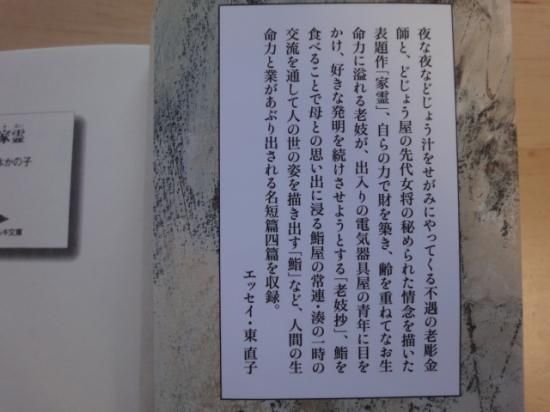 夜な夜などじょう汁をせがみにやってくる不遇の老彫金
師と、どじょう屋の先代女将の秘められた情念を描いた
表題作「家霊」、自らの力で財を築き、齢を重ねてなお生
命力に溢れる老妓が、出入りの電気器具屋の青年に目を
かけ、好きな発明を続けさせようとする「老妓抄」、鮨を
食べることで母との思い出に浸る鮨屋の常連・湊の一時の
交流を通して人の世の姿を描き出す「鮨」など、人間の生
命力と業があぶり出される名短篇四篇を収録。
エッセイ・東 直子
家霊
かの子
キ文庫